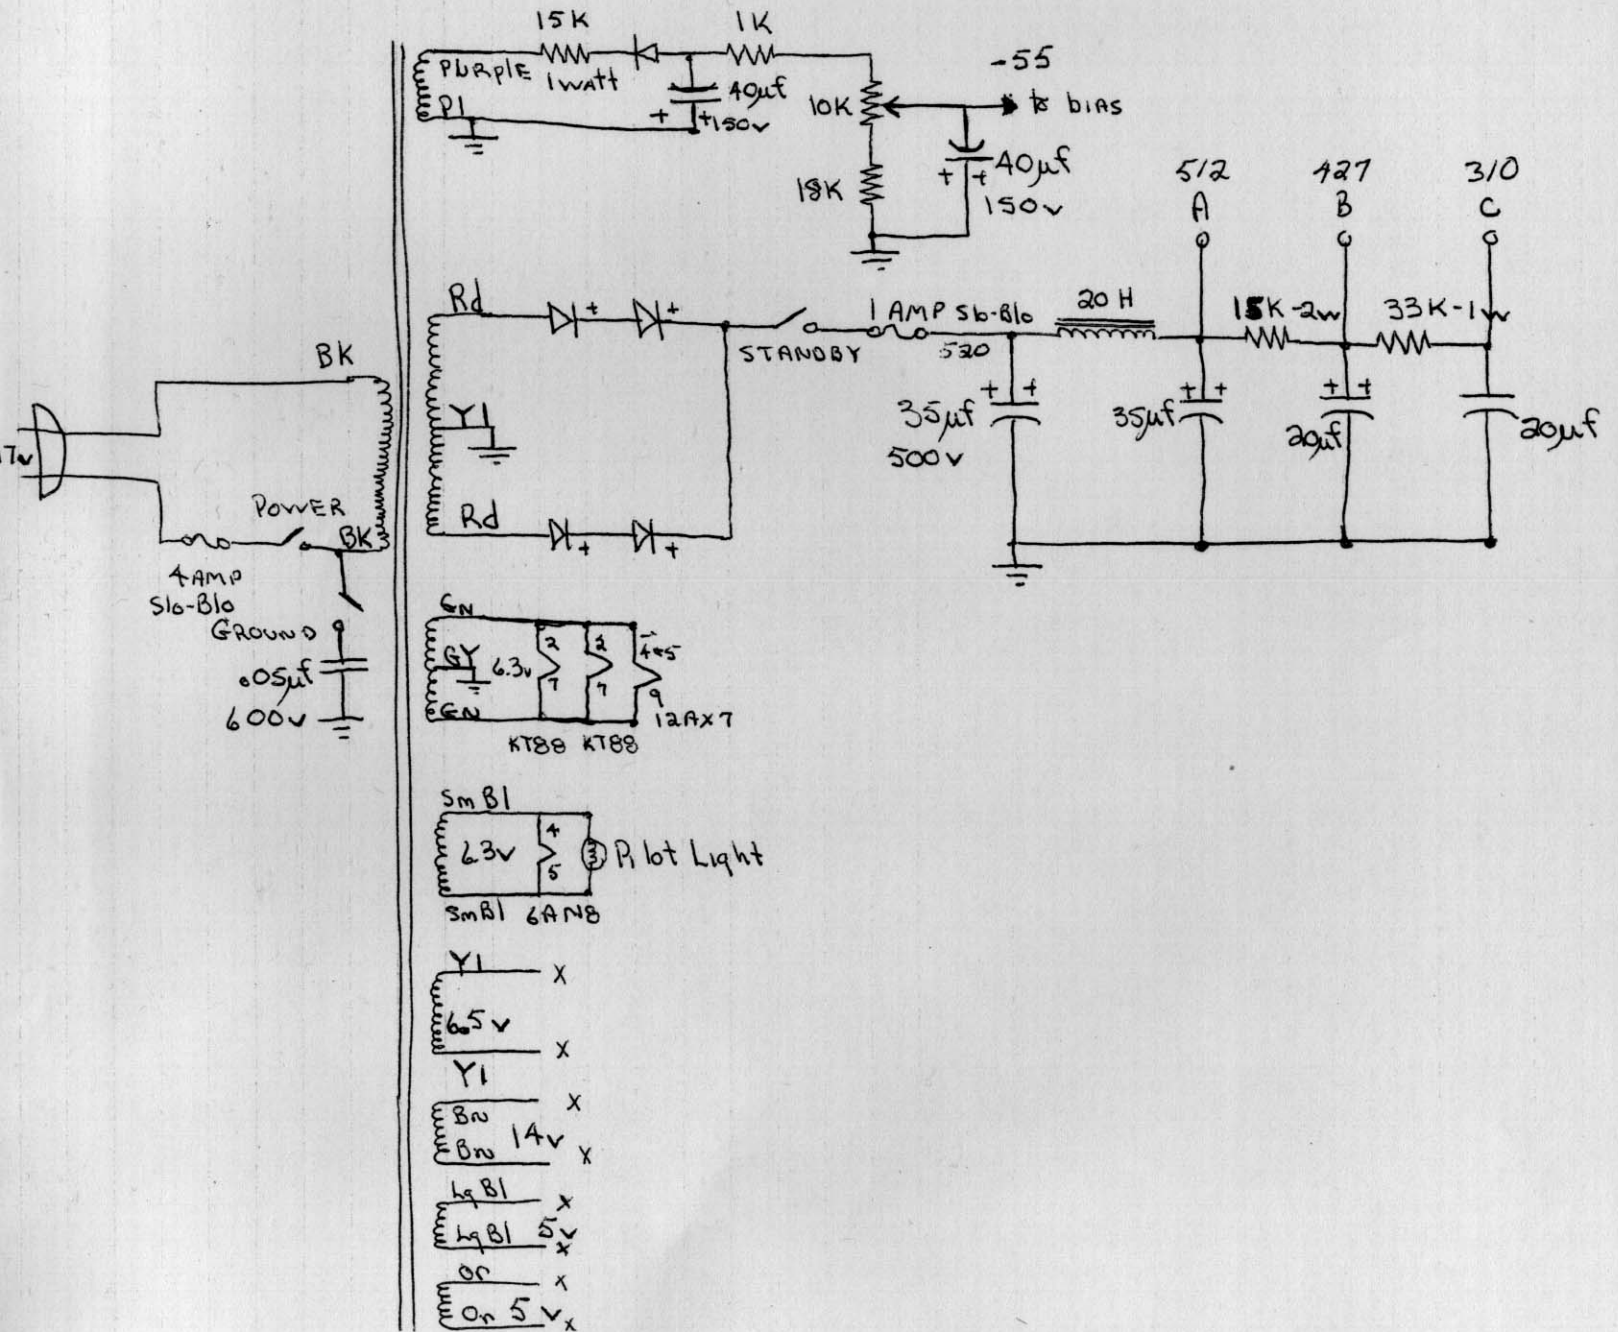 15K
1K
PURPLE
1 WATT
P1
40µf
+ +150v
10K
-55
to BIAS
18K
40µf
+ +
150v
512
427
310
A
B
C
Rd
+ +
1 AMP Slo-Blo
20 H
15K-2w
33K-1w
STANDBY
520
BK
Y1
+ +
35µf
500v
+ +
35µf
+ +
20µf
20µf
7v
POWER
BK
Rd
+ +
4 AMP
Slo-Blo
GROUND
.05µf
600v
GN
GY
6.3v
2
7
2
7
4+5
9
GN
12AX7
KT88 KT88
Sm Bl
6.3v
4
5
Pilot Light
Sm Bl 6AN8
Y1 X
6.5v
X
Y1
Bn X
Bn 14v X
Lg Bl X
Lg Bl 5v X
Or X
Or 5v X